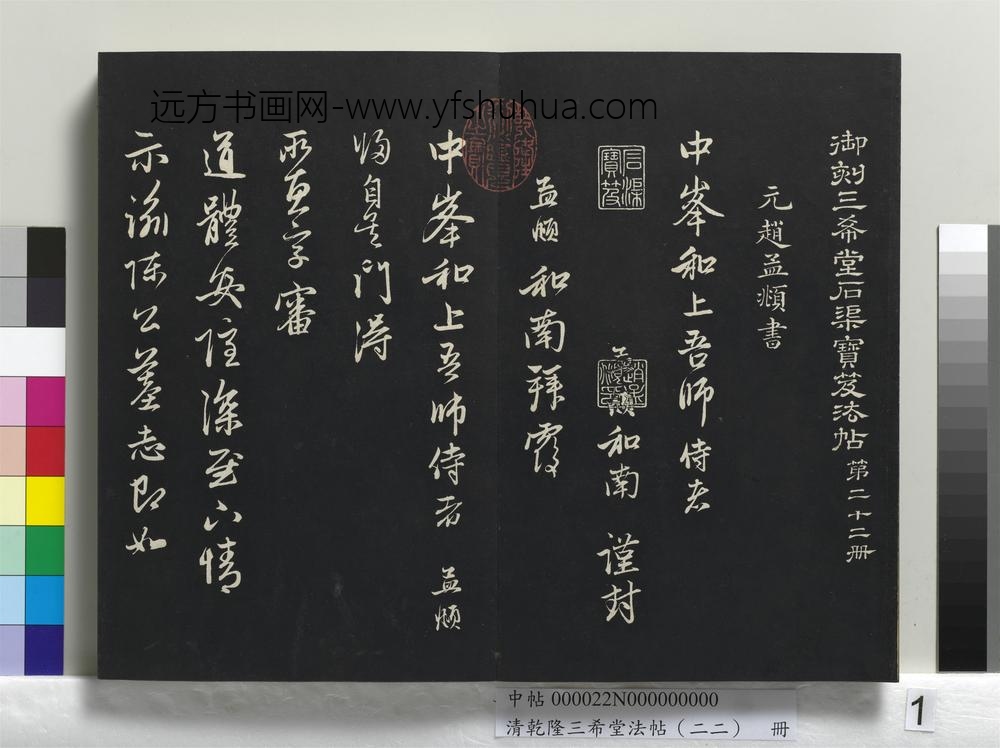 远方书画网-www.yfshuhua.com
御刻三希堂石渠寶笈法帖 第二十二冊
元趙孟頫書
中峯和上吾師侍者
石渠寶笈
和南 謹封
孟頫和南拜覆
中峯和上吾師侍者 孟頫
歸自吴门得
所惠字審
道體安隱深慰下情
示諭陳公墓志即如
中帖 000022N000000000
清乾隆三希堂法帖（二二） 冊
1